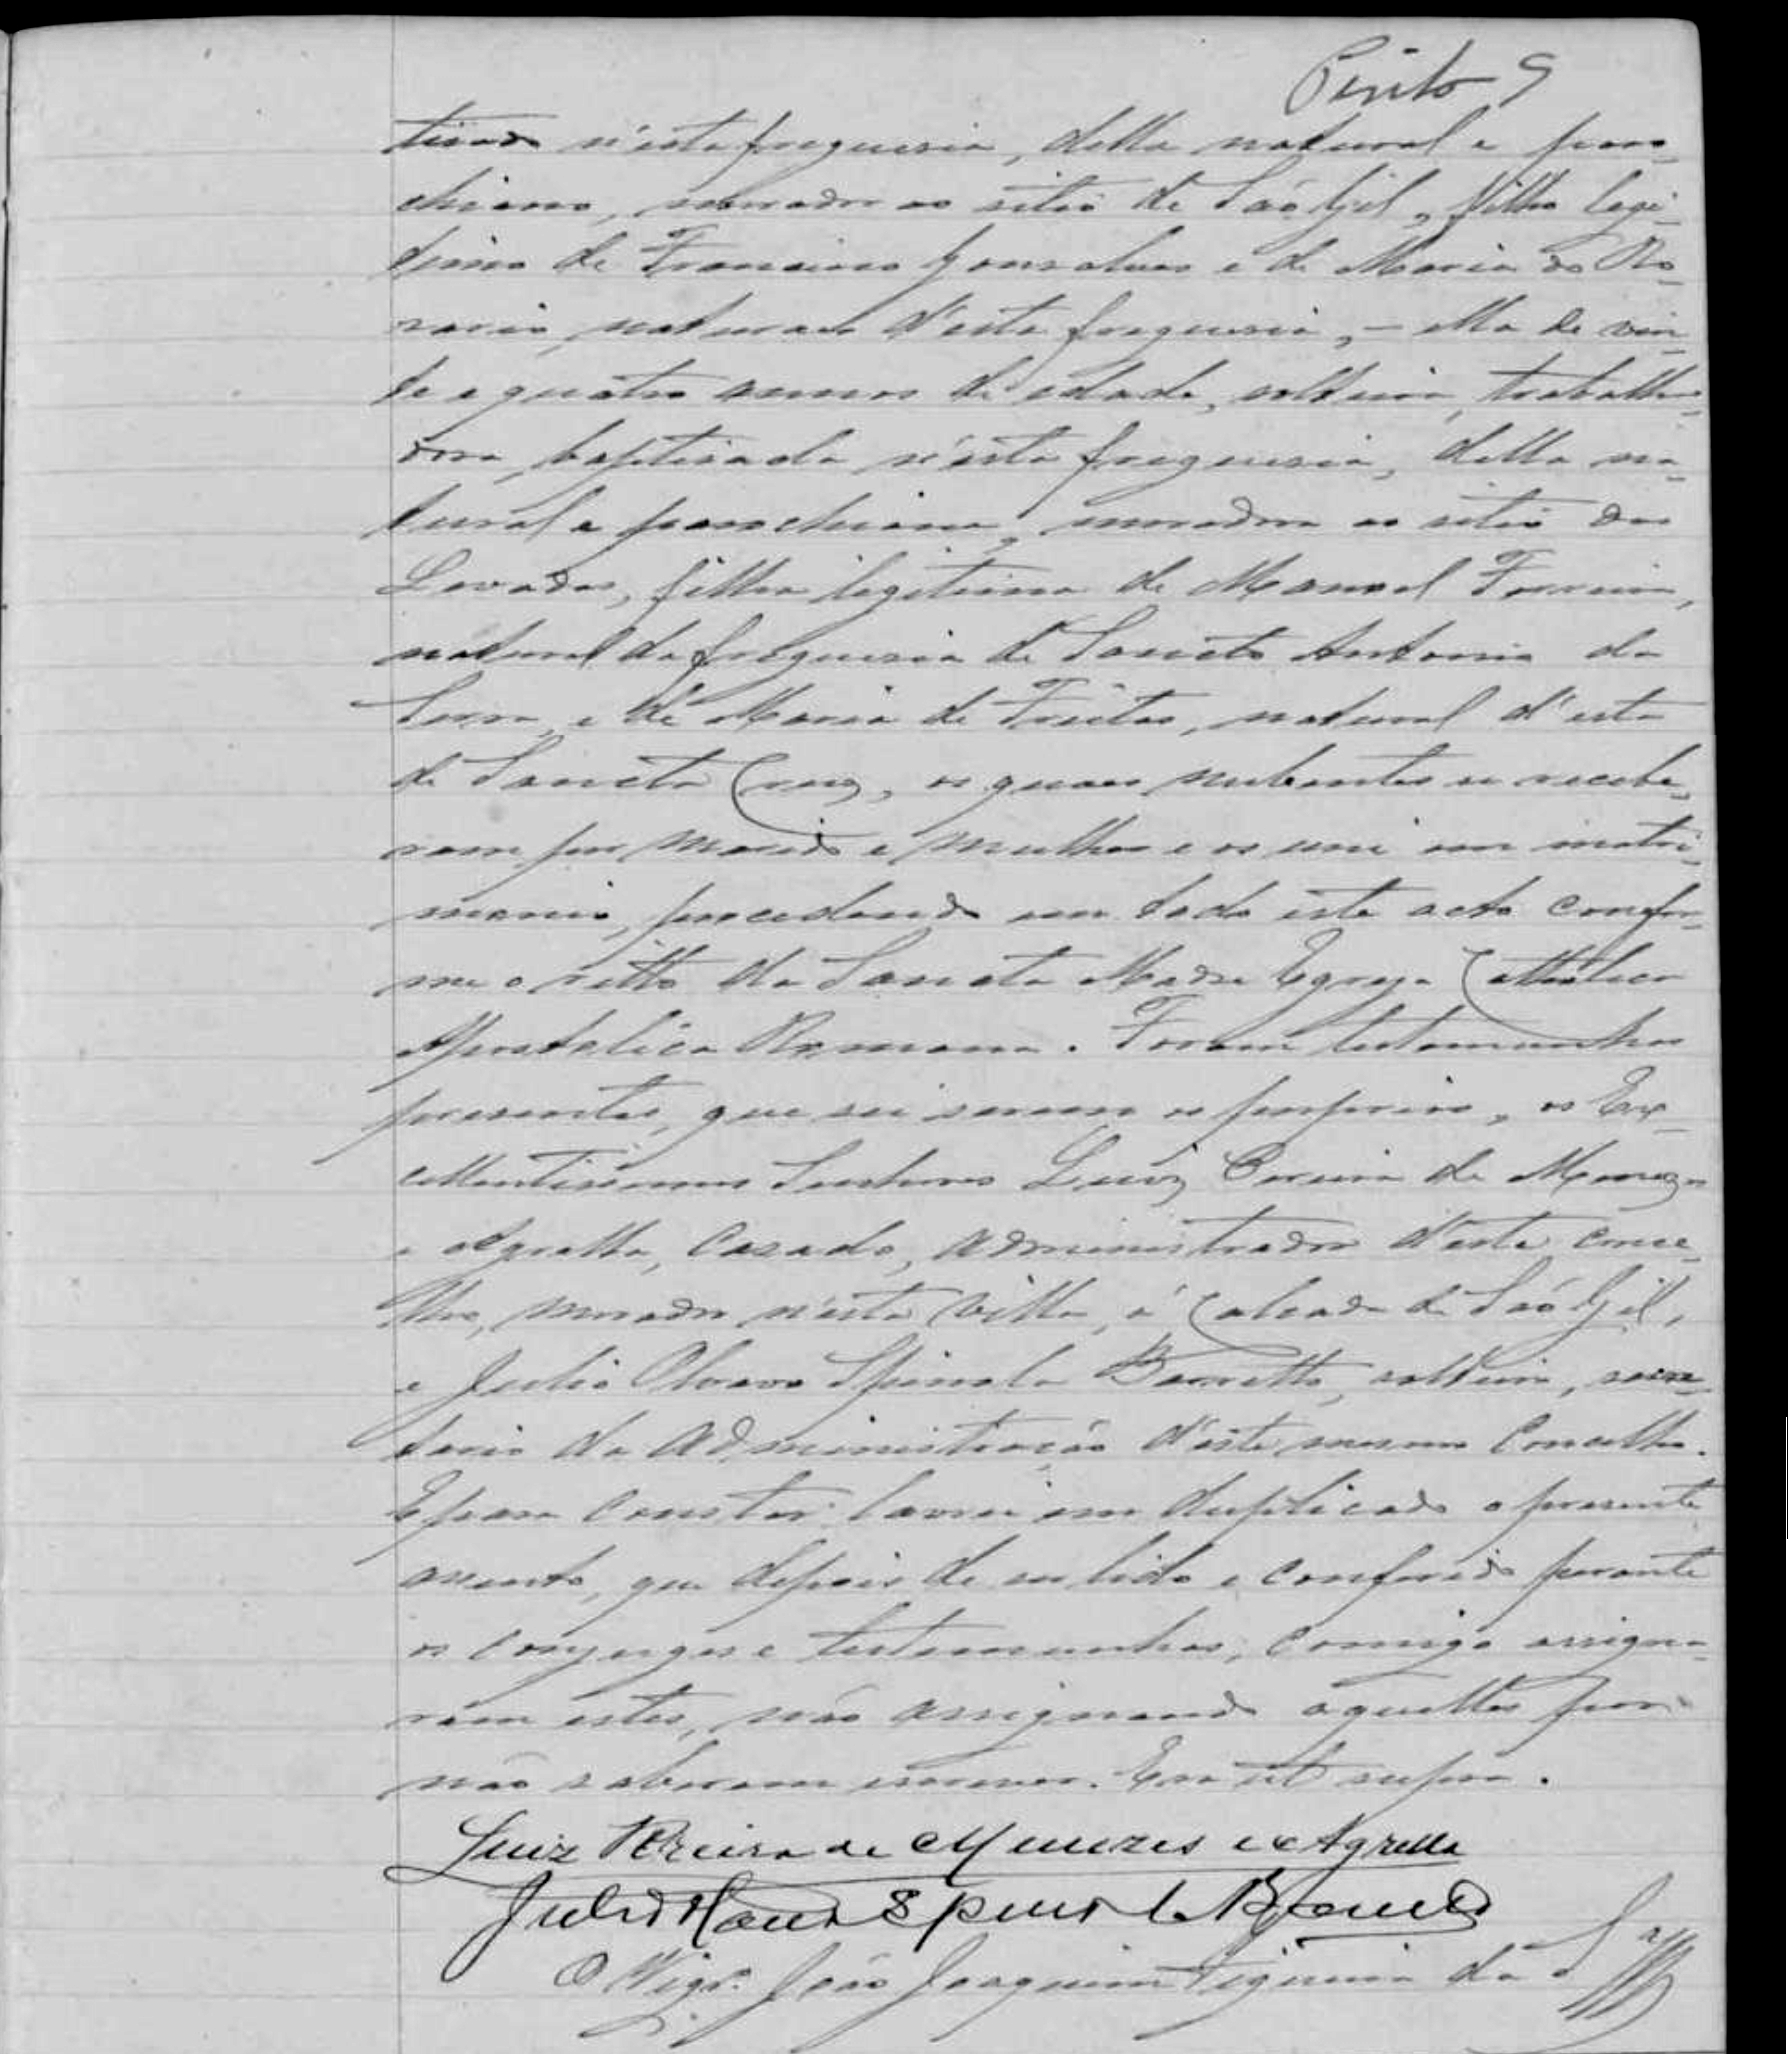 9
tisado n'esta freguesia, della natural e paro-
chiano, morador ao sitio de São Gil, filho legi-
timo de Francisco Gonsalves e de Maria do Ro-
sario, naturaes d'esta freguesia, – ella de vin-
te e quatro annos de edade, solteira, trabalha-
dora, baptisada n'esta freguesia, della na-
tural e parochiana, moradora ao sitio das
Levadas, filha legitima de Manoel Ferreira,
natural da freguesia de Sancto Antonio da
Serra, e de Maria de Freitas, natural d'esta
de Sancta Cruz, os quaes nubentes se recebe-
ram por marido e mulher e os uni em matri-
monio, procedendo em todo este acto confor-
me o ritto da Sancta Madre Egreja Catholica
Apostolica Romana. Foram testemunhas
presentes, que sei serem os proprios, os Ex-
cellentissimos Senhores Luiz Pereira de Menezes
e Agrella, casado, administrador d'este conce-
lho, morador n'esta villa, á Calçada de São Gil,
e Julio Spinola Barretto, solteiro, secre-
tario da Administração d'este mesmo Concelho.
E para constar lavrei em duplicado o presente
assento, que depois de ser lido e conferido perante
os conjuges e testemunhas, comigo assigna-
ram estes, não assignando aquelles por
não saberem escrever. Era ut supra.
Luiz Pereira de Menezes e Agrella
Julio Spinola Barretto
O Vigr.º João Joaquim Figueira da